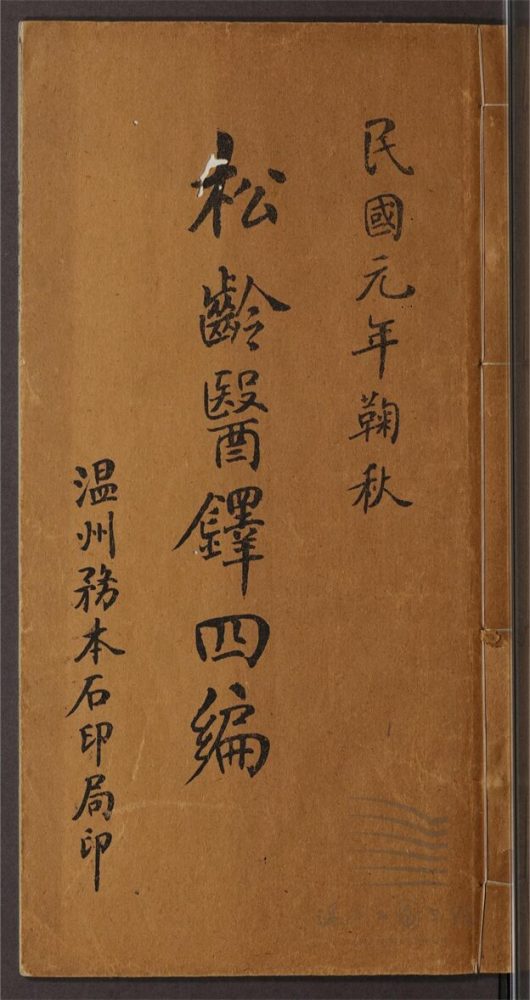 民國元年鞠秋
松齡醫鐸四編
温州務本石印局印